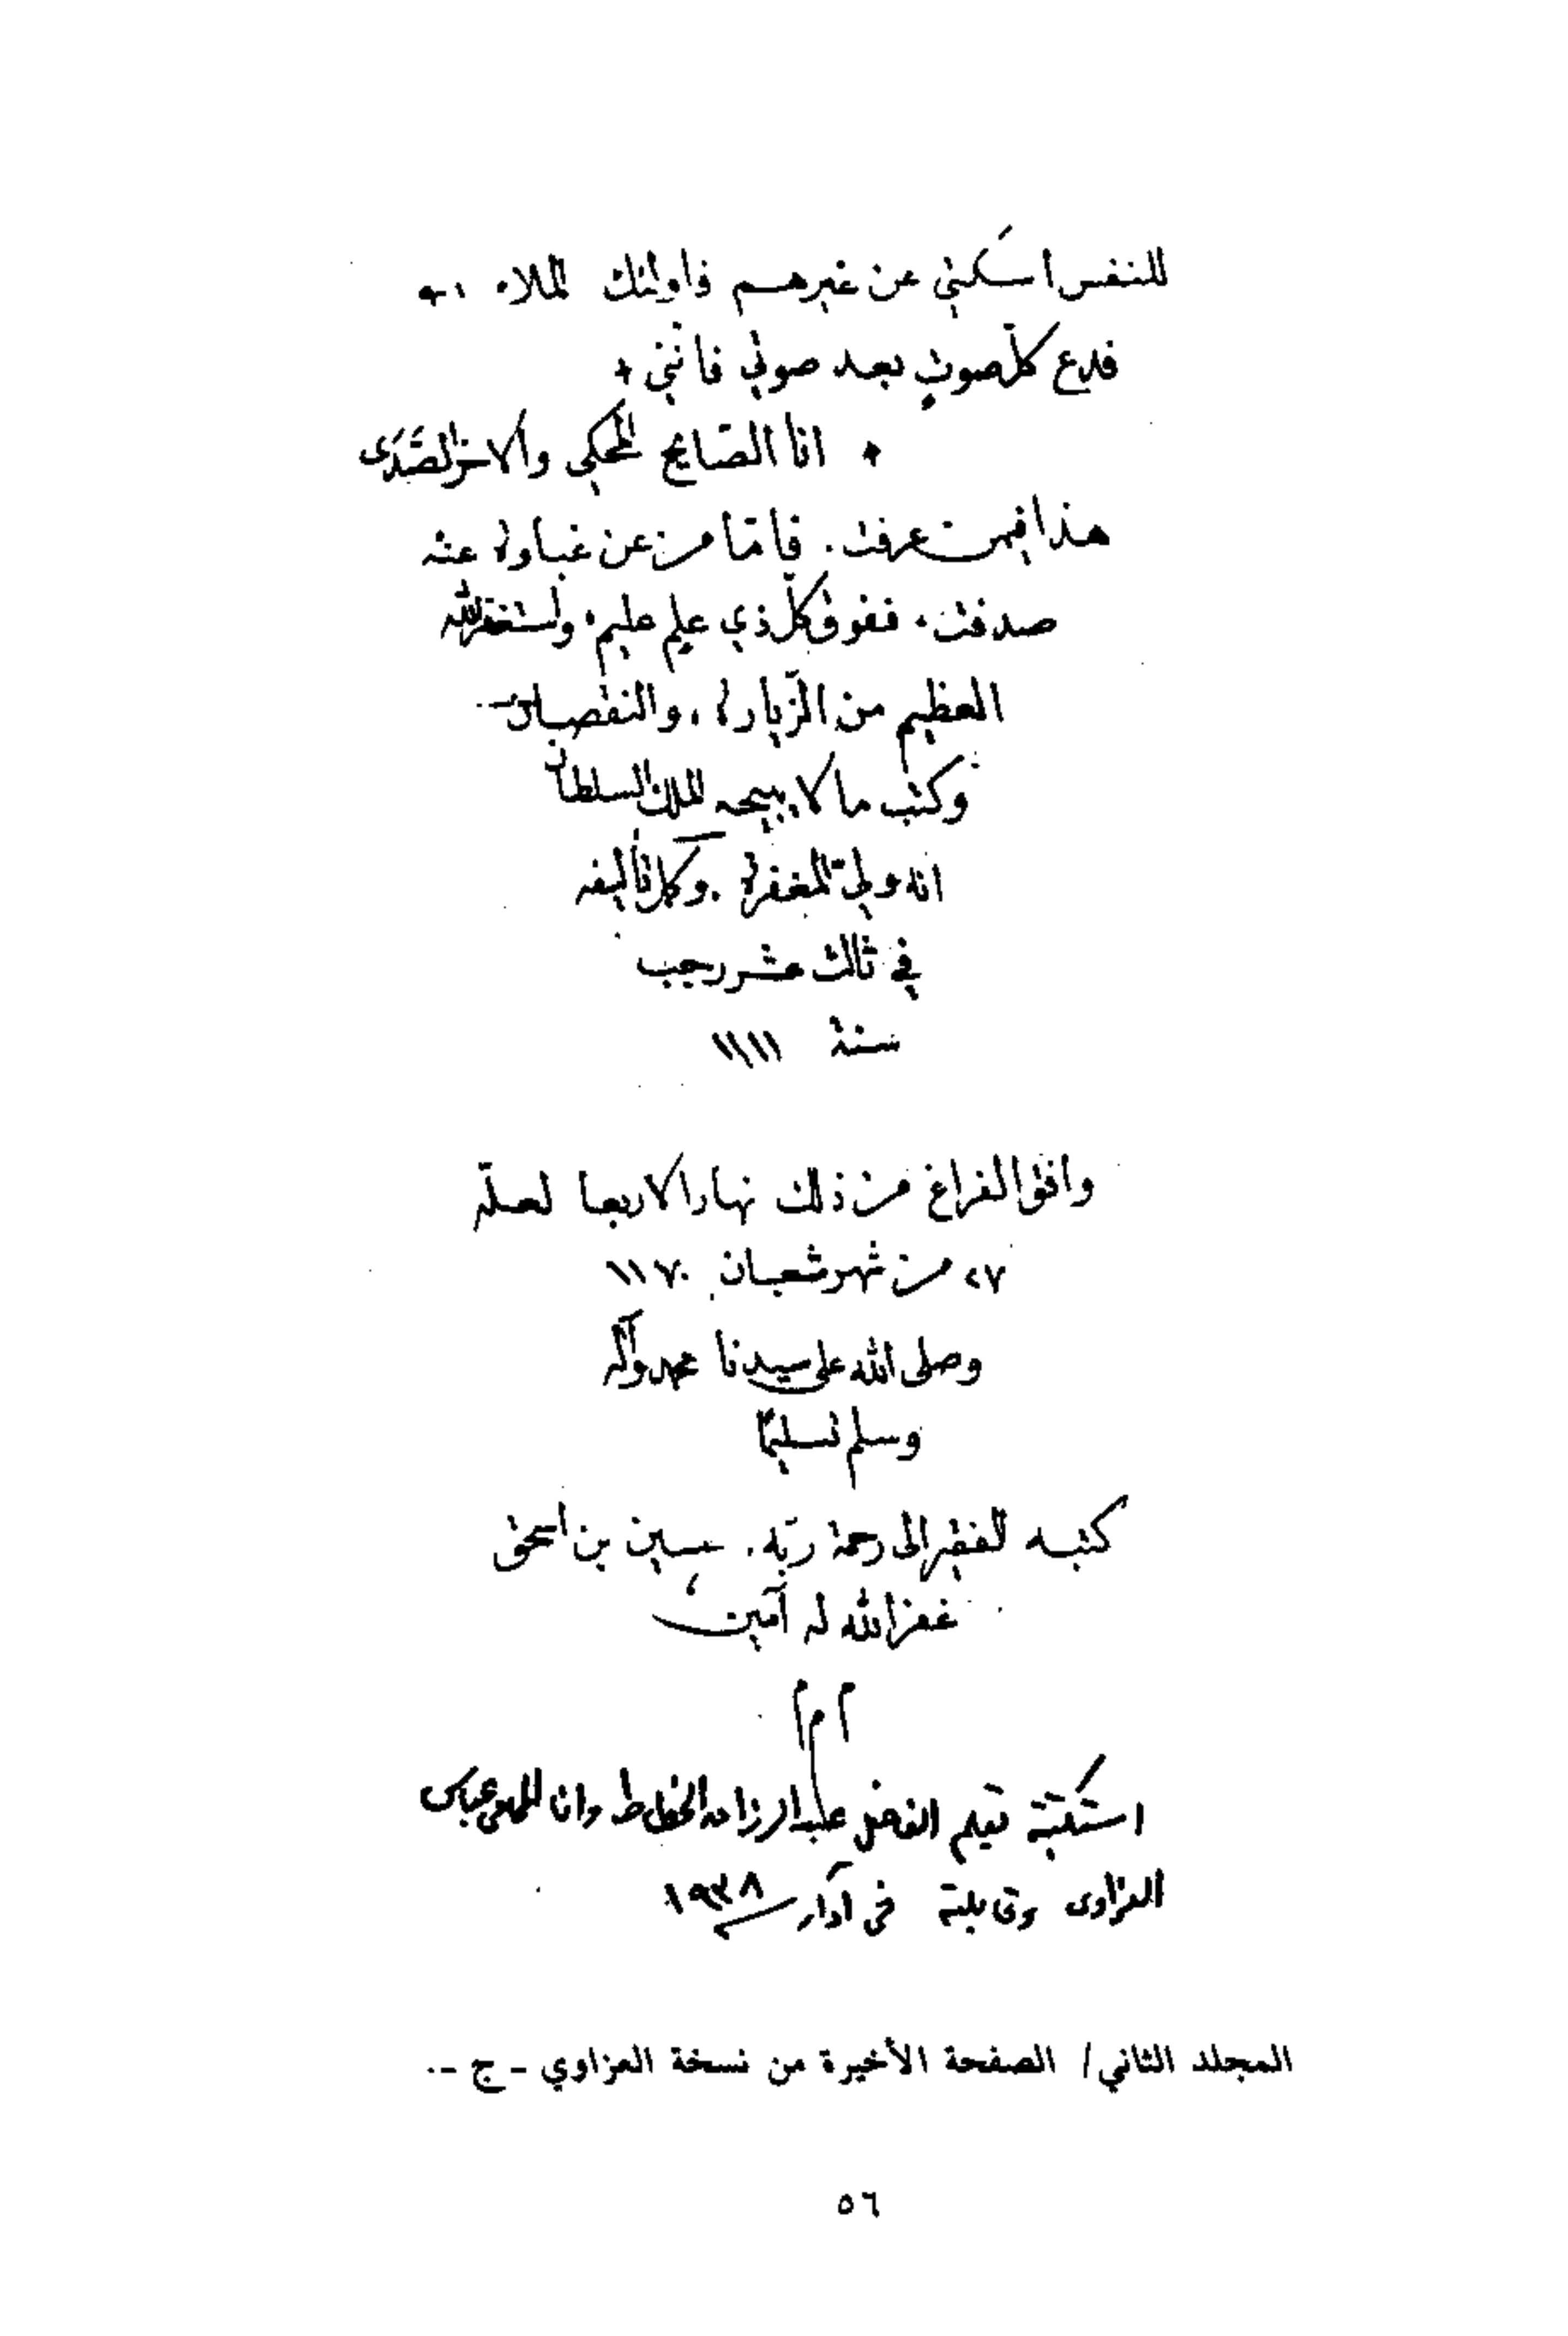 للنفس اسكني عن غيرهم فاولئك الملاء
فدع كلّ صوتٍ بعد صوتي فانّني
انا الصّايح المحكي والاخر الصَّدَى
هذا فيمن عرفت. فامّا من عن غباوة عنه
صدفت، ففوق كلّ ذي علم عليم، وأستغفر الله
العظيم من الزّيادة، والنقصان
وكتب ما لا يبيحه الملك السلطان
انه ولي المغفرة. وكمل تأليفه
في ثالث عشر رجب
سنة ١١١١
وافق الفراغ من ذلك نهار الاربعا لعلّه
٢٧ من شهر شعبان ١١٧٠
وصلى الله على سيدنا محمد وآله
وسلم تسليمًا
كتبه الفقير الى رحمة ربّه، حسين بن اسحق
غفر الله له آمين
م م م
استكتبته بقلم الفاضل عبد الرزاق الخطاط وانا المحامي عباس
العزاوى وقابلته في آذار سنة ١٩٣٨
المجلد الثاني/ الصفحة الأخيرة من نسخة العزاوي - ج -.
٥٦